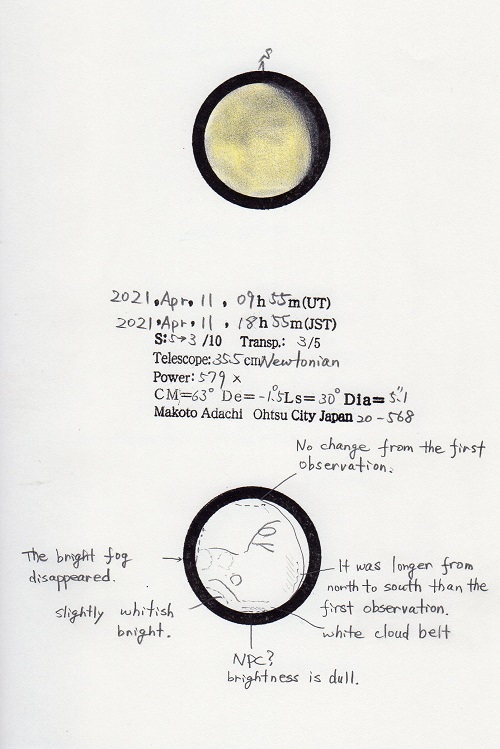 S
2021, Apr. 11, 09h 55m (UT)
2021, Apr. 11, 18h 55m (JST)
S: 5→3 /10 Transp.: 3/5
Telescope: 35.5 cm Newtonian
Power: 579 ×
CM=63° De= -1.5° Ls= 30° Dia= 5.1"
Makoto Adachi Ohtsu City Japan 20-568
No change from the first
observation.
The bright fog
disappeared.
It was longer from
north to south than the
first observation.
slightly whitish
bright.
white cloud belt
NPC?
brightness is dull.